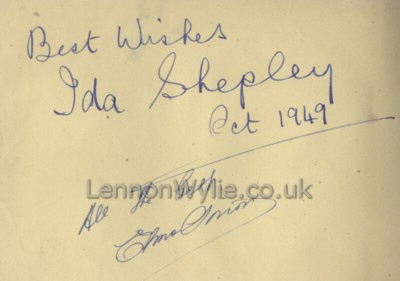 Best Wishes
Ida Shepley
Oct 1949
All the Best
LennonWylie.co.uk